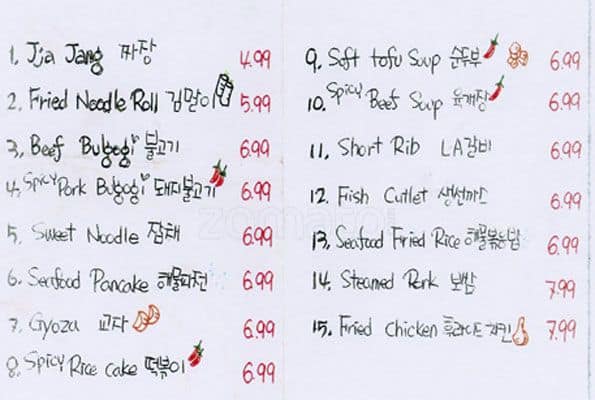 1. Jja Jang 짜장 4.99
2. Fried Noodle Roll 김말이 5.99
3. Beef Bulgogi 불고기 6.99
4. Spicy Pork Bulgogi 돼지불고기 6.99
5. Sweet Noodle 잡채 6.99
6. Seafood Pancake 해물파전 6.99
7. Gyoza 교자 6.99
8. Spicy Rice cake 떡볶이 6.99
9. Soft tofu Soup 순두부 6.99
10. Spicy Beef Soup 육개장 6.99
11. Short Rib LA갈비 6.99
12. Fish Cutlet 생선까스 6.99
13. Seafood Fried Rice 해물볶음밥 6.99
14. Steamed Pork 보쌈 7.99
15. Fried Chicken 후라이드치킨 7.99
zomato